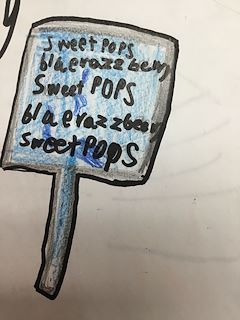 sweet POPS
blue razz berry
Sweet POPS
blue razz berry
sweet Pops